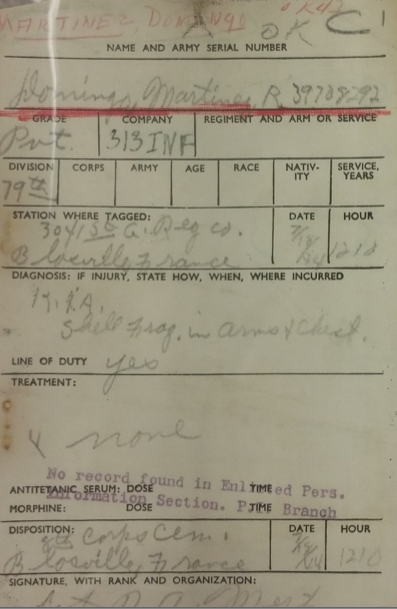 MARTINEZ DOMINGO OK
OK C
NAME AND ARMY SERIAL NUMBER
Domingo Martinez R 39708292
GRADE COMPANY REGIMENT AND ARM OR SERVICE
Pvt. 313 INF
DIVISION CORPS ARMY AGE RACE NATIV-ITY SERVICE, YEARS
79th
STATION WHERE TAGGED: DATE HOUR
3041 Reg Co. 1210
Blosville, France
DIAGNOSIS: IF INJURY, STATE HOW, WHEN, WHERE INCURRED
K.I.A.
Shell Frag. in arms & Chest.
LINE OF DUTY yes
TREATMENT:
none
No record found in Enlisted Pers.
ANTITETANIC SERUM: DOSE TIME
Information Section. Branch
MORPHINE: DOSE TIME
DISPOSITION: DATE HOUR
Corps Cem.
Blosville, France 1210
SIGNATURE, WITH RANK AND ORGANIZATION: